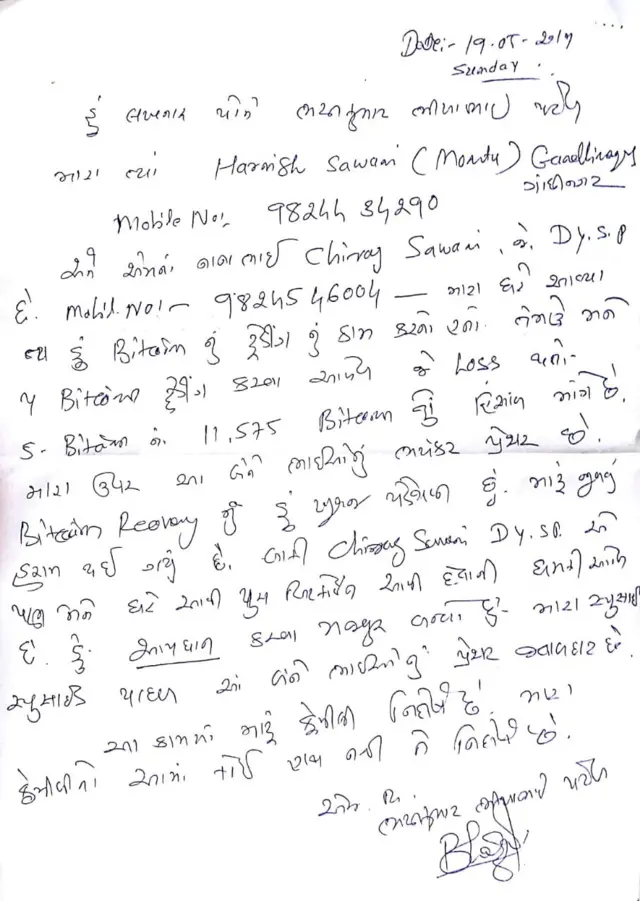 Date:- 19.05-2019
Sunday.
હું લખનાર પોતે ભરતકુમાર ભીખાભાઇ પટેલ
મારા ત્યાં Harnish Sawani (Montu) Gandhinagar
ગાંધીનગર
Mobile No:- 98244 34290
અને એમનાં ભાઇ Chirag Sawani, જે. Dy.S.P
છે. Mobil. No:- 98245 46004 — મારા ઘરે આવ્યા
ત્યા હું Bitcoin નું ટ્રેડીંગ નું કામ કરતો હતો. તેમણે મને
Bitcoin ટ્રેડીંગ કરવા આપેલ જે Loss થતાં
Bitcoin ના 11,575 Bitcoin નું હિસાબ માંગે છે.
મારા ઉપર આ બંને ભાઇઓનું ભયંકર પ્રેશર છે.
Bitcoin Recovery નું હું ખુબજ પરેશાન છું. મારૂં જીવવું
હરામ થઇ ગયું છે. Chirag Sawani Dy.SP. એ
પણ મને ઘરે આવી આપી દેવાની ધમકી આપેલ
છે. હું આપઘાત કરવા મજબુર બન્યો છું. મારા સ્યુસાઇડ
સ્યુસાઇડ પાછળ આ બંને ભાઇઓનું પ્રેશર જવાબદાર છે.
આ કામમાં મારૂં ફેમીલી નિર્દોષ છે. મારા
ફેમીલીનો આમાં કોઇ હાથ નથી તે નિર્દોષ છે.
ભરતકુમાર ભીખાભાઇ પટેલ